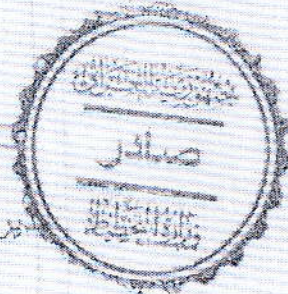 جمهورية العراق
صادر
وزارة التخطيط